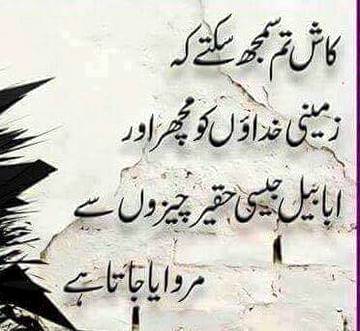 کاش تم سمجھ سکتے کہ
زمینی خداؤں کو مچھر اور
ابابیل جیسی حقیر چیزوں سے
مروایا جاتا ہے